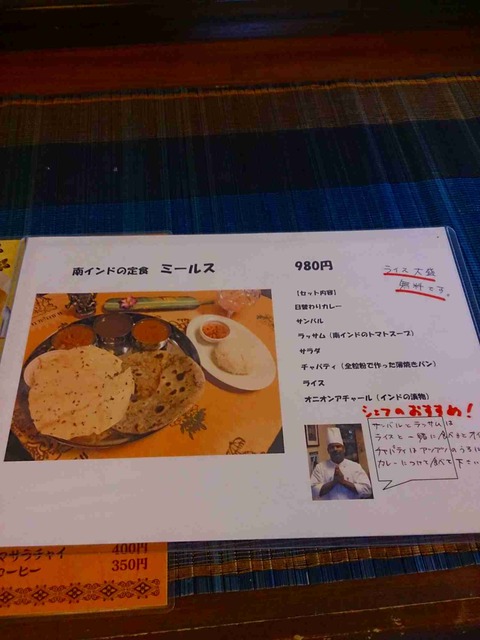 南インドの定食 ミールス 980円
ライス大盛
無料です。
[セット内容]
日替わりカレー
サンバル
ラッサム（南インドのトマトスープ）
サラダ
チャパティ（全粒粉で作った薄焼きパン）
ライス
オニオンアチャール（インドの漬物）
シェフのおすすめ！
サンバルとラッサムは
ライスと一緒に食べると
チャパティはアツアツのうちに
カレーにつけて食べて下さい
マサラチャイ 400円
コーヒー 350円